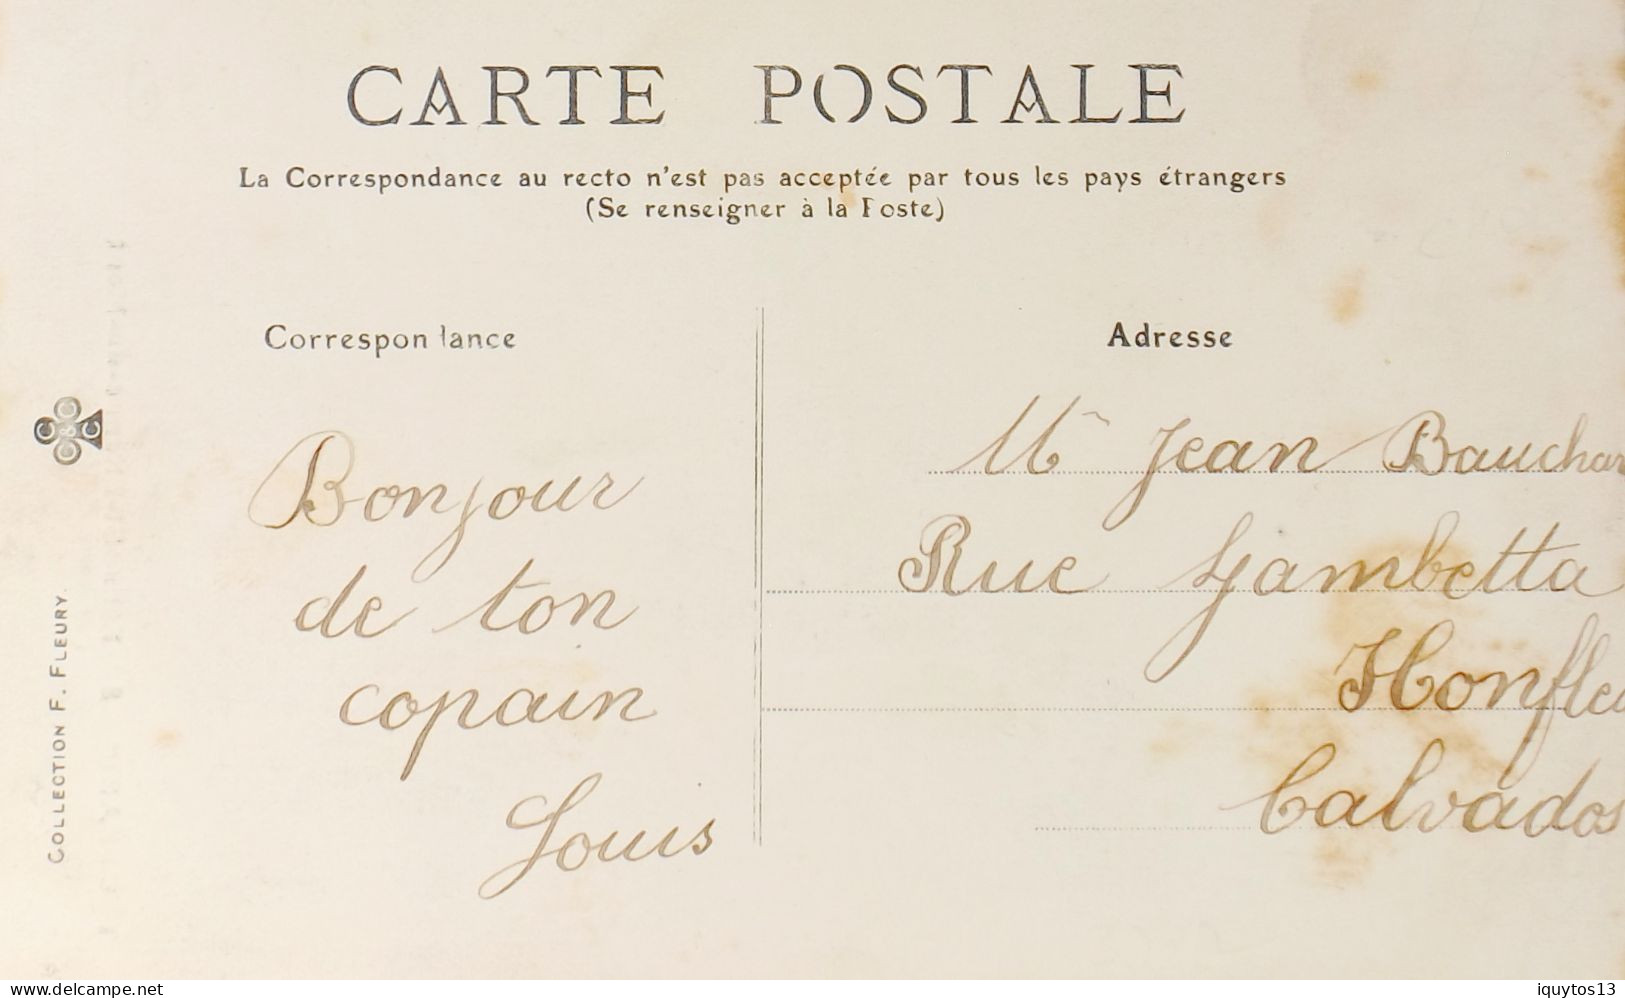 CARTE POSTALE
La Correspondance au recto n'est pas acceptée par tous les pays étrangers
(Se renseigner à la Poste)
Correspondance
Bonjour
de ton
copain
Louis
Adresse
Mr Jean Bauchar
Rue Gambetta
Honfleu
Calvados
COLLECTION F. FLEURY.
www.delcampe.net
iquytos13